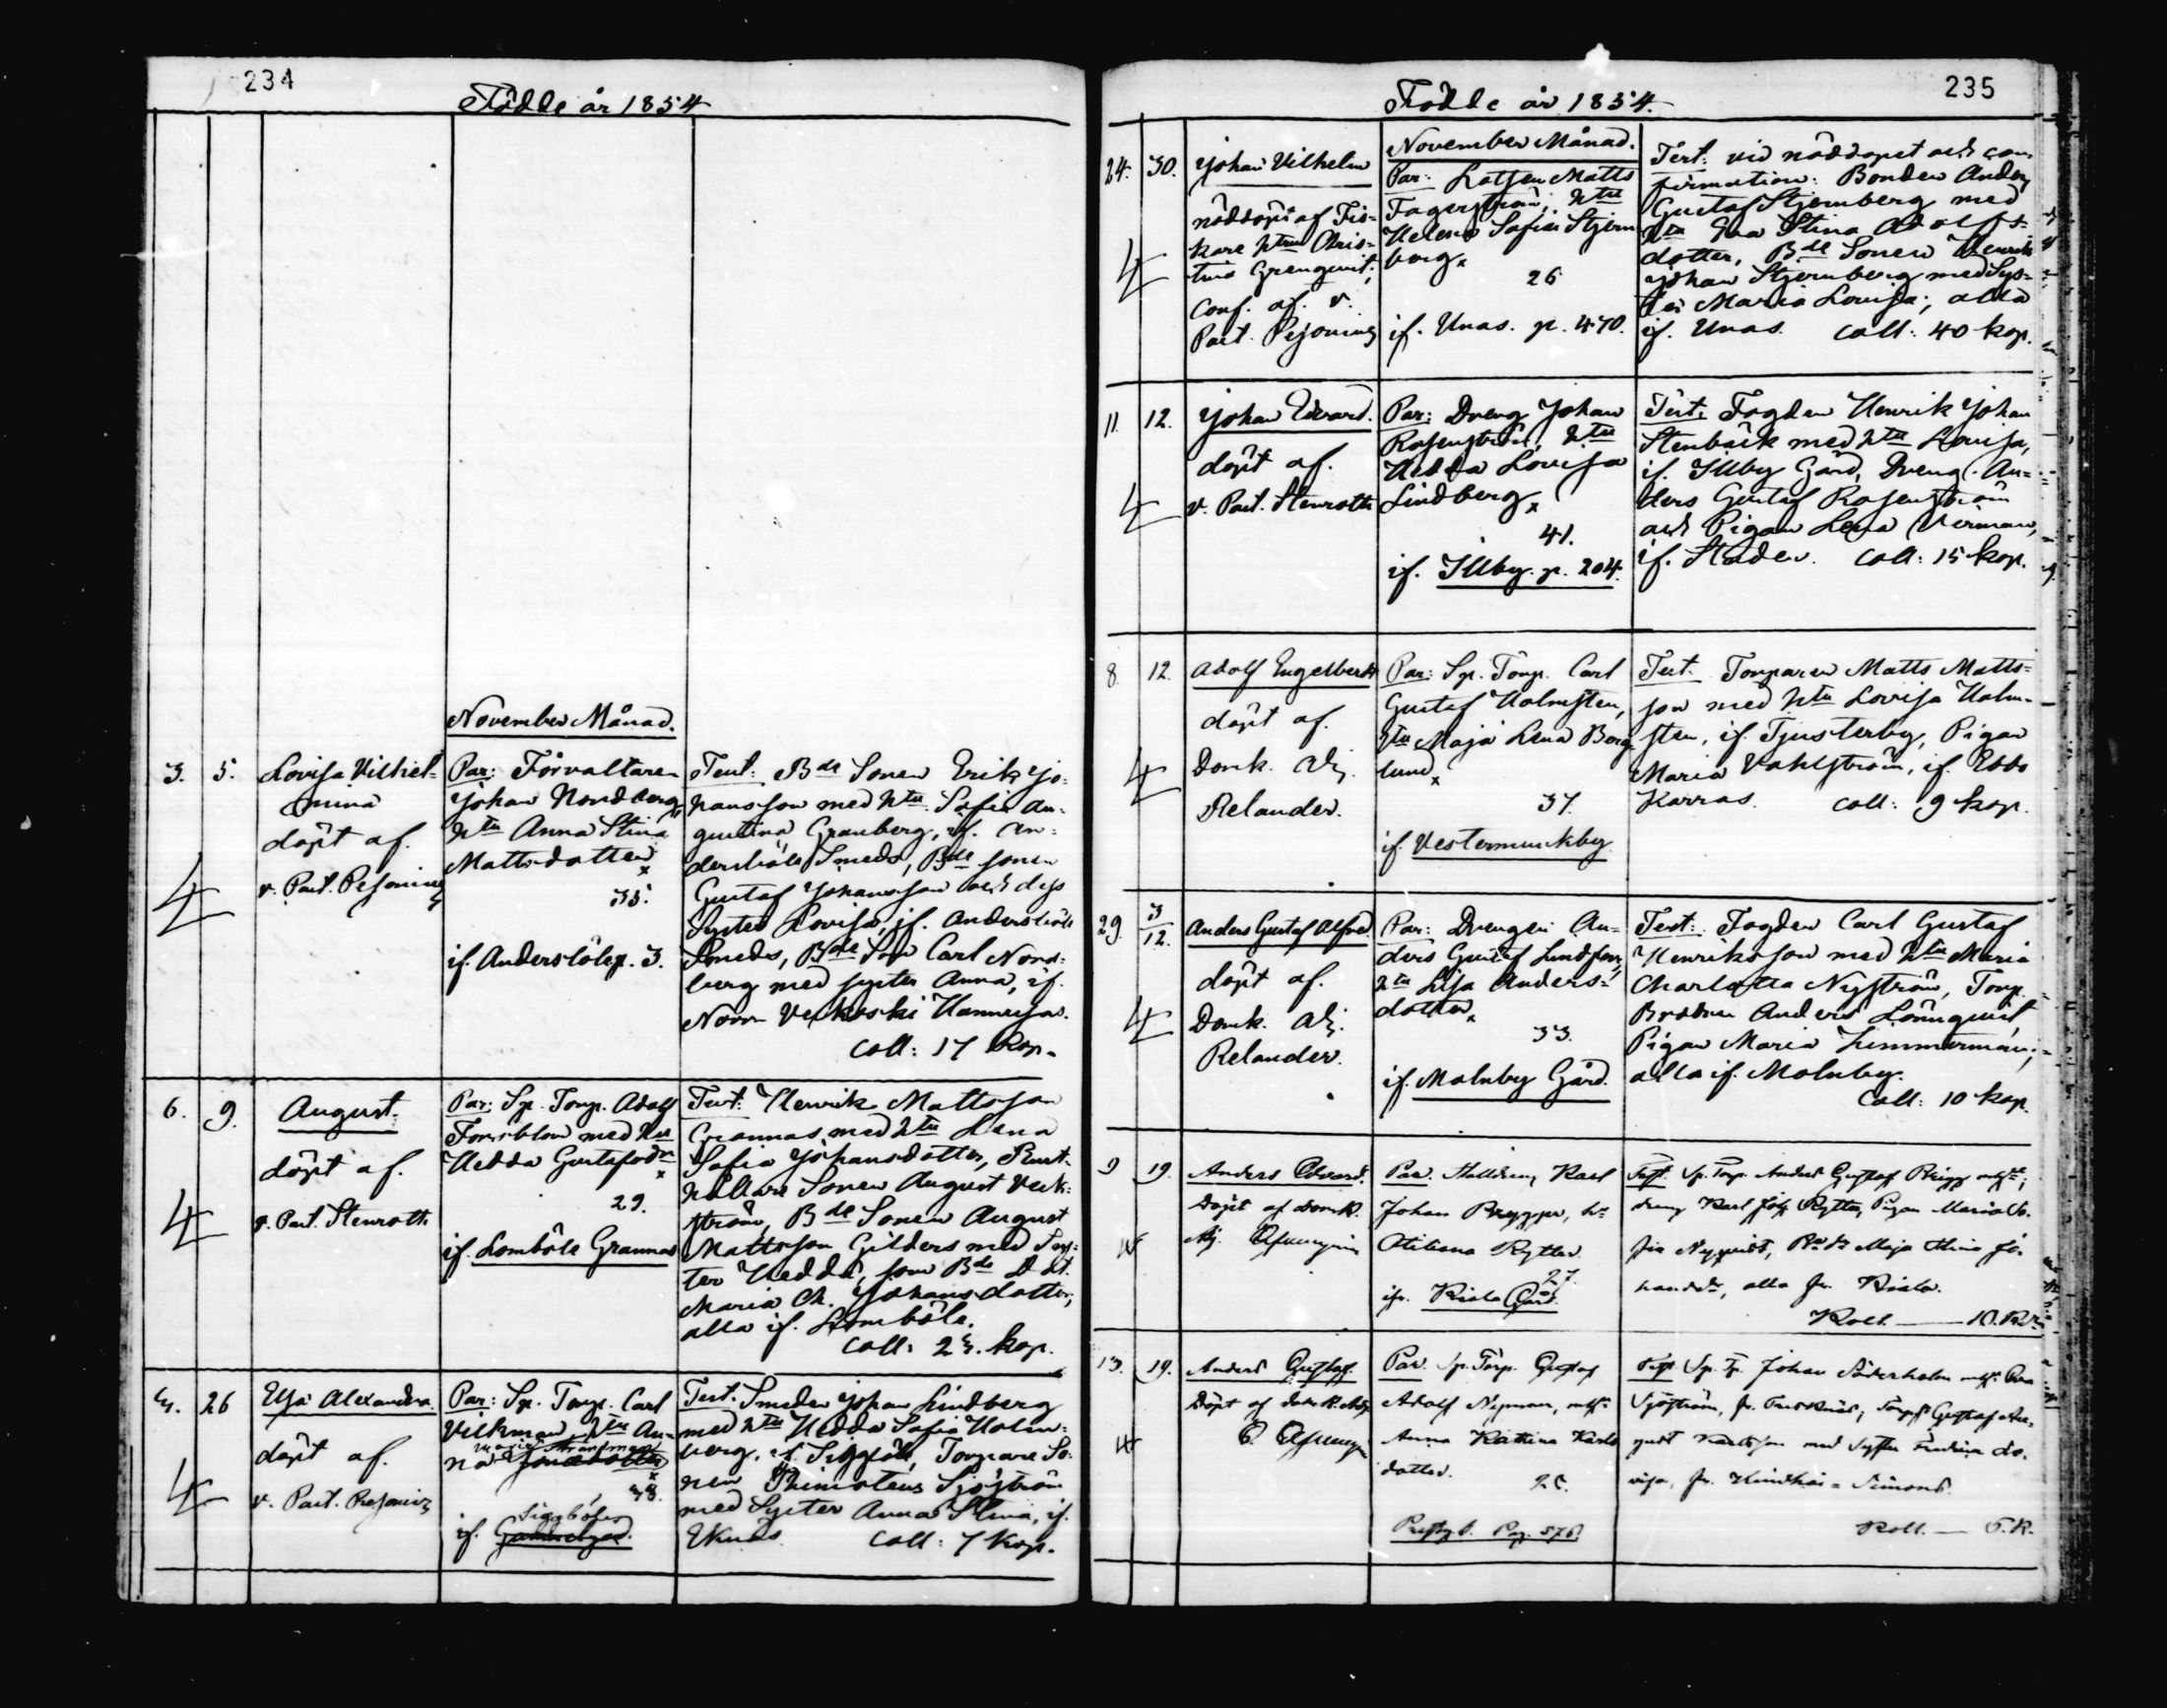 234
Födde år 1854
November Månad.
3. 5. Lovisa Vilhel=
mina
döpt af.
v. Past. Pesonius
Par: Förvaltaren
Johan Nordberg,
Hru Anna Stina
Mattsdotter
35.
if. Andersböle p. 3.
Test: Bde Sonen Erik Jo=
hansson med Hru Sofia Au=
gustina Granberg, if. An=
dersböle Smeds, Bde Sonen
Gustaf Johansson och dess
Syster Lovisa, if. Andersböle
Smeds, Bde Son Carl Nord=
berg med syster Anna, if.
Norr Veckoski Hannusas.
Coll: 17 kop.
6. 9. August.
döpt af.
v. Past. Stenroth
Par: Sp. Torp. Adolf
Forsblom med Hu
Hedda Gustafsdr
29.
if. Lomböle Grannas
Test: Henrik Mattsson
Grannas med Hru Lena
Sofia Johansdotter, Rust=
hållare Sonen August Veck=
ström, Bde Sonen August
Mattsson Gilders med Sys=
ter Hedda, samt Bde Dot.
Maria Ch. Johansdotter,
alla if. Lomböle.
Coll: 25. kop.
26 Elsa Alexandra.
döpt af.
v. Past. Pesonius
Par: Sp. Torp. Carl
Vickman, Hru An=
na
Maria Strandman
38.
Siggböle
if.
Test. Smeden Johan Lindberg
med Hru Hedda Sofia Holm=
berg, if. Siggböle, Torpare So=
nen Thimoteus Sjöström
med Syster Anna Stina, if.
Eknäs. Coll: 7 kop.
235
Födde år 1854.
November Månad.
24. 30. Johan Vilhelm
nöddöpt af Fis=
kare Htrun Chris=
tina Grenqvist;
Conf. af v.
Past. Pesonius
Par: Lotsen Matts
Fagerström, Hru
Helena Sofia Stjern
berg
26
if. Unas. p. 470.
Test: vid nöddopet och con=
firmation: Bonden Anders
Gustaf Stjernberg med
Hru Eva Stina Adolfs=
dotter, Bde Sonen Henrik
Johan Stjernberg med Sys=
ter Maria Lovisa; alla
if. Unas. Coll: 40 kop.
11. 12. Johan Edvard.
döpt af.
v. Past. Stenroth
Par: Dreng Johan
Rosenström, Hru
Hedda Lovisa
Lindberg
41.
if. Illby. p. 204.
Test: Fogden Henrik Johan
Stenbäck med Hru Lovisa,
if. Illby Gård, Dreng An=
ders Gustaf Rosenström
och Pigan Lena Virman,
if. Staden. Coll: 15 kop.
8. 12. Adolf Engelbert
döpt af.
Domk. Adj.
Relander.
Par: Sp. Torp. Carl
Gustaf Holmsten,
Hru Maja Lena Berg
lund
37.
if. Vestermunkby
Test. Torparen Matts Matts=
son med Hru Lovisa Holm=
sten, if. Tjusterby, Pigan
Maria Vahlström, if. Ebbo
Karras. Coll: 9 kop.
29. 3/12. Anders Gustaf Alfred.
döpt af.
Domk. Adj.
Relander.
Par: Drengen An=
ders Gustaf Lundsten,
Hru Lisa Anders=
dotter
33.
if. Malmby Gård.
Test: Fogden Carl Gustaf
Henriksson med Hru Maria
Charlotta Nyström, Torp.
Brodren Anders Lönnqvist,
Pigan Maria Zimmerman;
alla if. Malmby.
Coll: 10 kop.
9 19. Anders Edvard.
Döpt af Domk.
Adj.
Par. Stalldreng Karl
Johan Brygger, h:u
Otiliana Rytter.
27.
if. Kiala Gård.
Test. Sp. Torp. Anders Gustaf
dreng Karl Joh. Rytter, Pigan Maria So=
fia Nyqvist, Maja Stina Jo=
hansdr, alla fr. Kiala.
Koll. — 10. K.
13. 19. Anders Gustaf.
Döpt af Domk. Adj.
Par. Sp. Torp. Gustaf
Adolf Nyman,
Anna Katrina Karls
dotter.
25.
Prestg. b. Pag. 576.
Test. Sp. Tp. Johan Söderholm
Sjöström, Gustaf Au=
gust Karlsson med Syster Fredrica Lo=
visa, fr. Simons.
Koll. — 5. K.